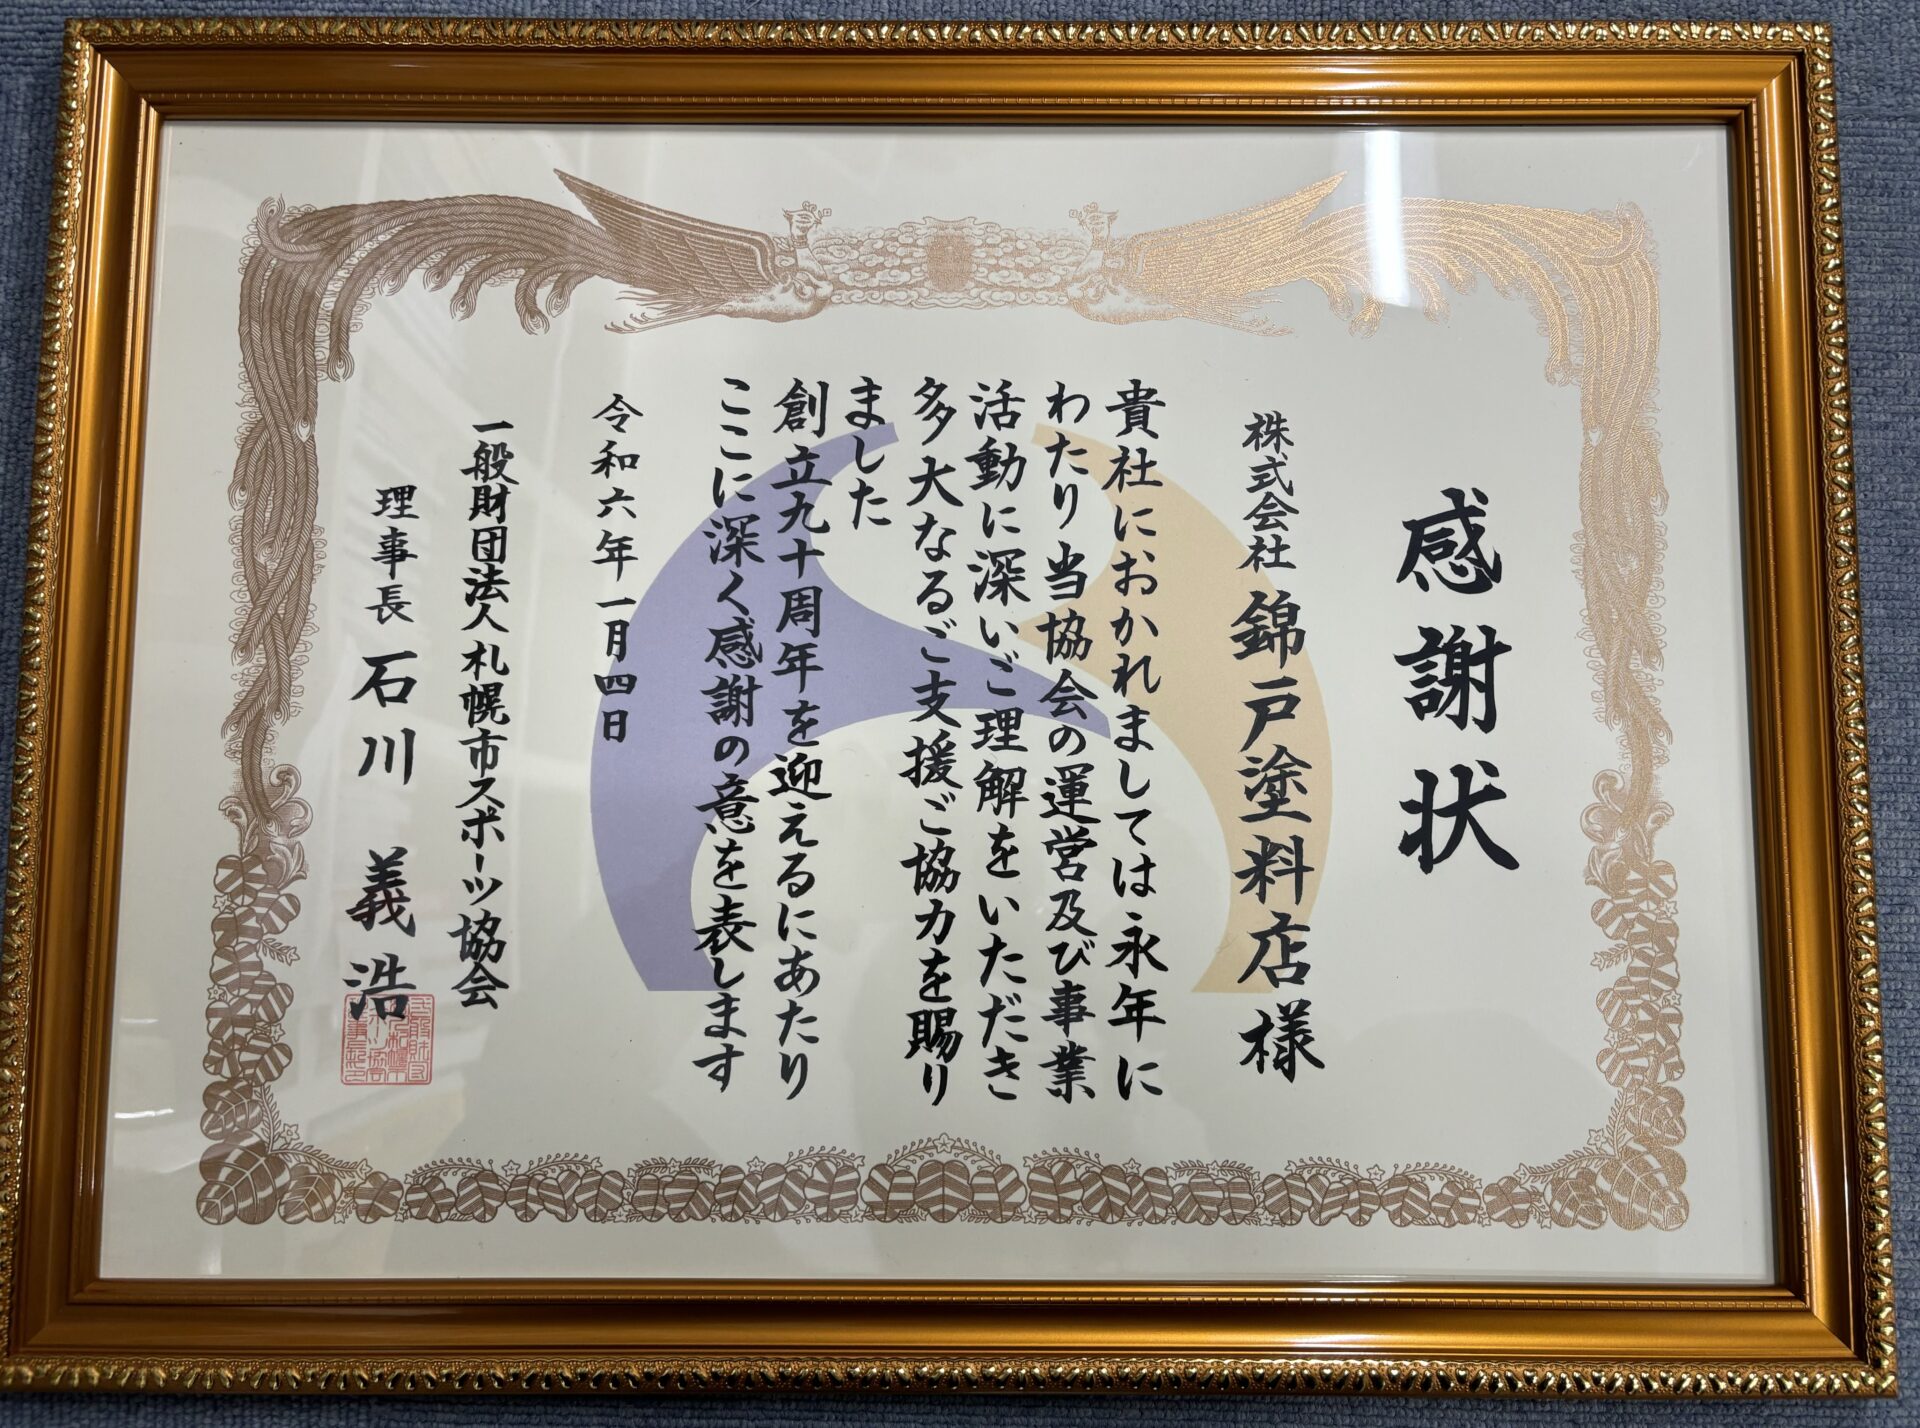 感謝状
株式会社 錦戸塗料店様
貴社におかれましては永年に
わたり当協会の運営及び事業
活動に深いご理解をいただき
多大なるご支援ご協力を賜り
ました
創立九十周年を迎えるにあたり
ここに深く感謝の意を表します
令和六年一月四日
一般財団法人札幌市スポーツ協会
理事長 石川 義浩